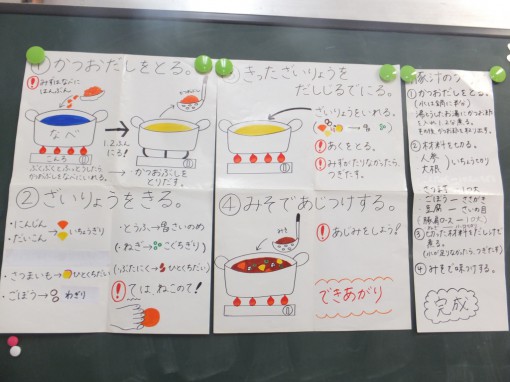 ① かつおだしをとる。
! みずはなべに
はんぶん
なべ
こんろ
→
1、2ふん
にる!
ぶくぶくとふっとうしたら
かつおぶしをなべにいれる。
→ かつおぶしを
とりだす。
② ざいりょうをきる。
・にんじん
・だいこん
→ いちょうぎり
・さつまいも→ ひとくちだい
・ごぼう→ わぎり
・とうふ→ さいのめ
・ねぎ→ こぐちぎり
(ぶたにく→ ひとくちだい)
! ては、ねこのて!
③ きったざいりょうを
だしじるでにる。
ざいりょうをいれる。
! あくをとる。
! みずがたりなかったら、
つぎたす。
④ みそであじつけする。
みそ
! あじみをしよう!
できあがり
豚汁の
① かつおだしをとる。
② 材料をきる。
人参
大根
いちょうぎり
ごぼう ― ささがき
豆腐 ― さいの目
③ 切った材料をだし汁で
煮る。
(水が足りなかったら、つぎたす)
④ みそで味つけする。
完成